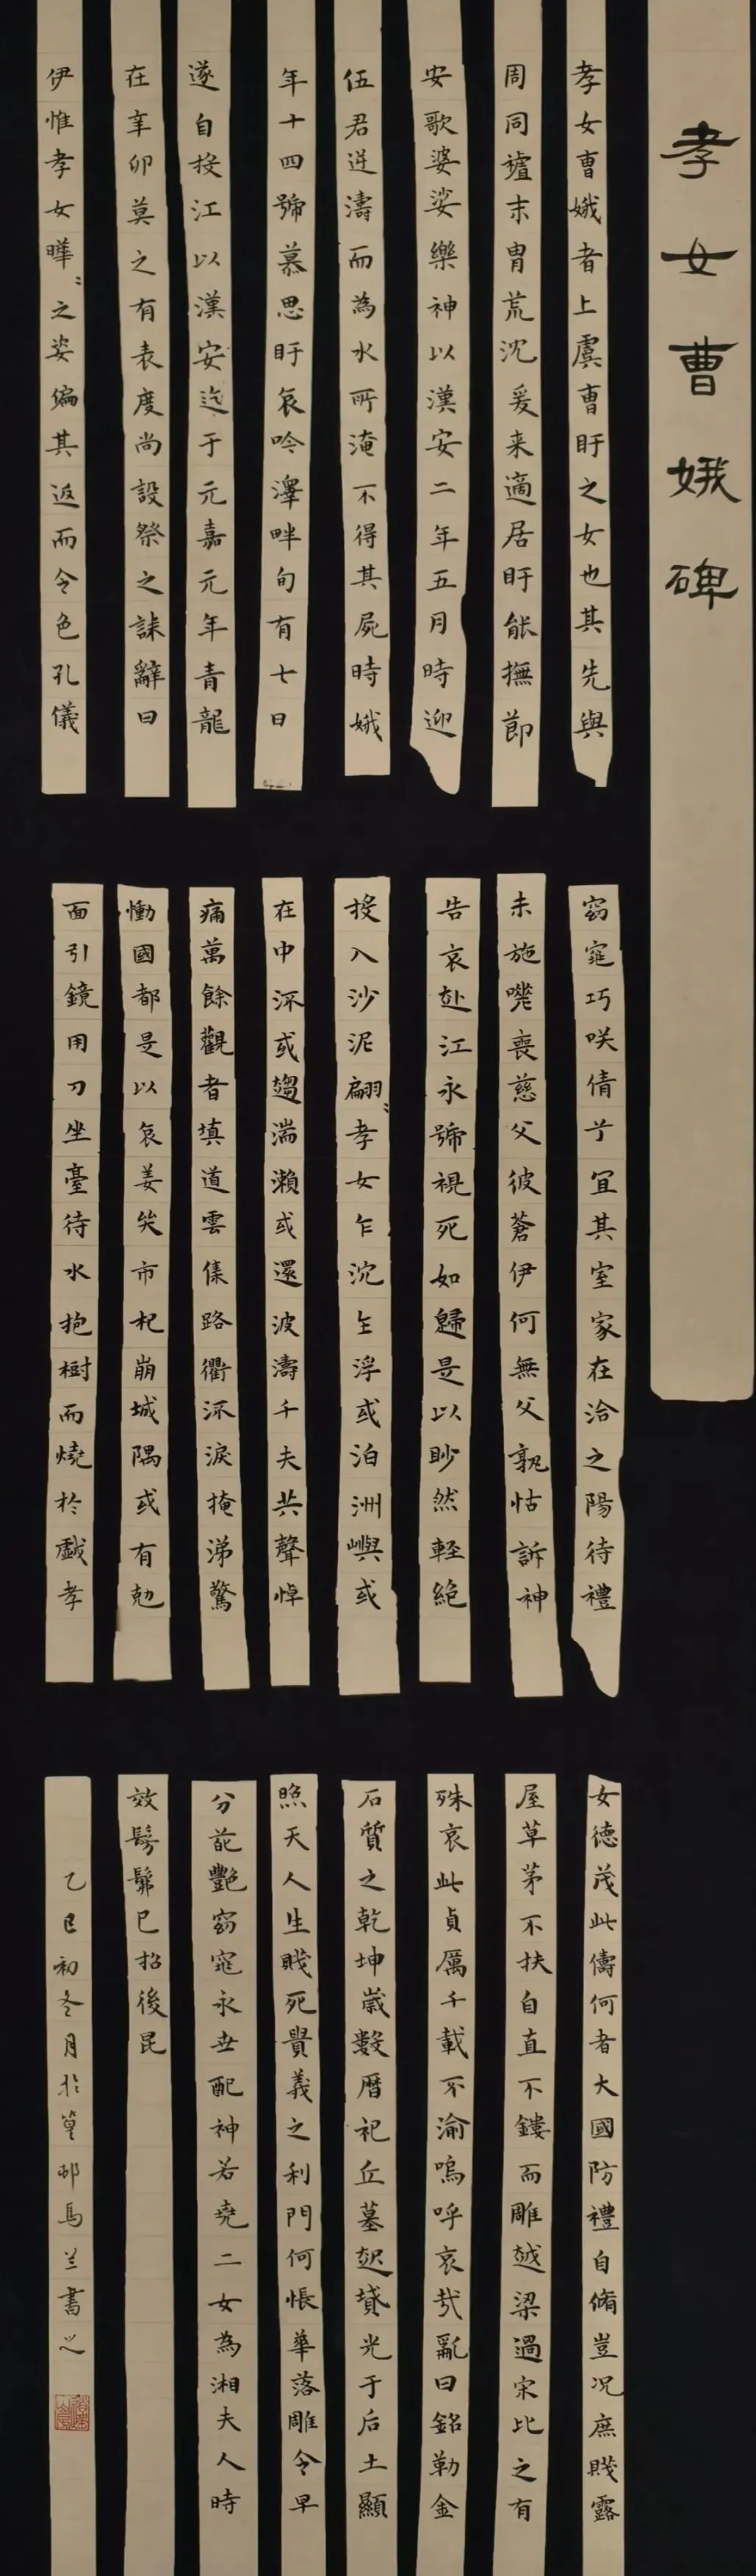 孝女曹娥碑
孝女曹娥者上虞曹盱之女也其先與
周同禇末胄荒沈爰来適居盱能撫節
安歌婆娑樂神以漢安二年五月時迎
伍君逆濤而為水所淹不得其屍時娥
年十四號慕思盱哀吟澤畔旬有七日
遂自投江以漢安迄于元嘉元年青龍
在辛卯莫之有表度尚設祭之誄辭曰
伊惟孝女曄〻之姿偏其返而令色孔儀
窈窕巧咲倩兮宜其室家在洽之陽待禮
未施嗟喪慈父彼蒼伊何無父孰怙訴神
告哀赴江永號視死如歸是以眇然軽絶
投入沙泥翩〻孝女乍沈乍浮或泊洲嶼或
在中流或趨湍瀨或還波濤千夫共聲悼
痛萬餘觀者填道雲集路衢流淚掩涕驚
慟國都是以哀姜哭市杞崩城隅或有尅
面引鏡用刀坐臺待水抱樹而燒扵戲孝
女德茂此儔何者大國防禮自脩豈况庶賤露
屋草茅不扶自直不鏤而雕越梁過宋比之有
殊哀此貞厲千載不渝嗚呼哀哉亂曰銘勒金
石質之乾坤歲數曆祀丘墓起墳光于后土顯
照天人生賤死貴義之利門何悵華落雕令早
分葩艷窈窕永世配神若堯二女為湘夫人時
效髣髴已招後昆
乙巳初冬月於邨馬兰書之